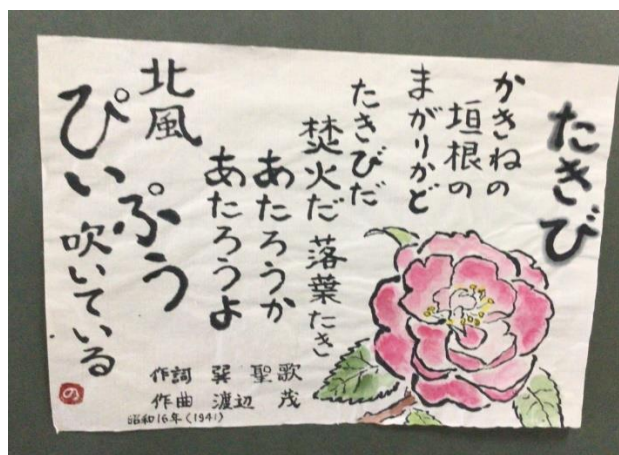 たきび
かきねの
垣根の
まがりかど
たきびだ
焚火だ 落葉たき
あたろうか
あたろうよ
北風
ぴいぷう
吹いている
作詞 巽 聖歌
作曲 渡辺 茂
昭和16年(1941)
の